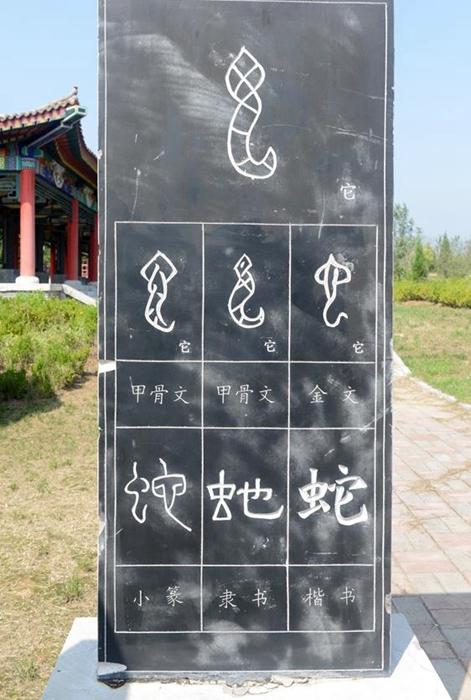 它
它 它 它
甲骨文 甲骨文 金文
蛇 虵 蛇
小篆 隶书 楷书